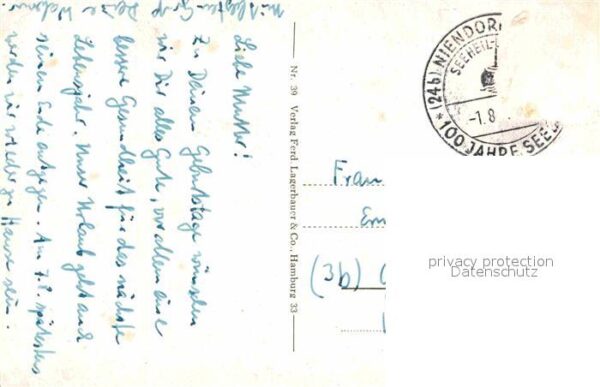 Liebe Mutter!
Zu Deinem Geburtstage wünschen
wir Dir alles Gute, vor allem eine
bessere Gesundheit für das nächste
Lebensjahr. Unser Urlaub geht auch
seinem Ende entgegen. Am 7.8. spätestens
werden wir wieder zu Hause sein.
Mit besten Grüß
Nr. 39 Verlag Ferd Lagerbauer & Co., Hamburg 33
* (24b) NIENDOR
SEEHEIL-
-1.8
* 100 JAHRE SEEB
Frau
Em
(3b)
privacy protection
Datenschutz